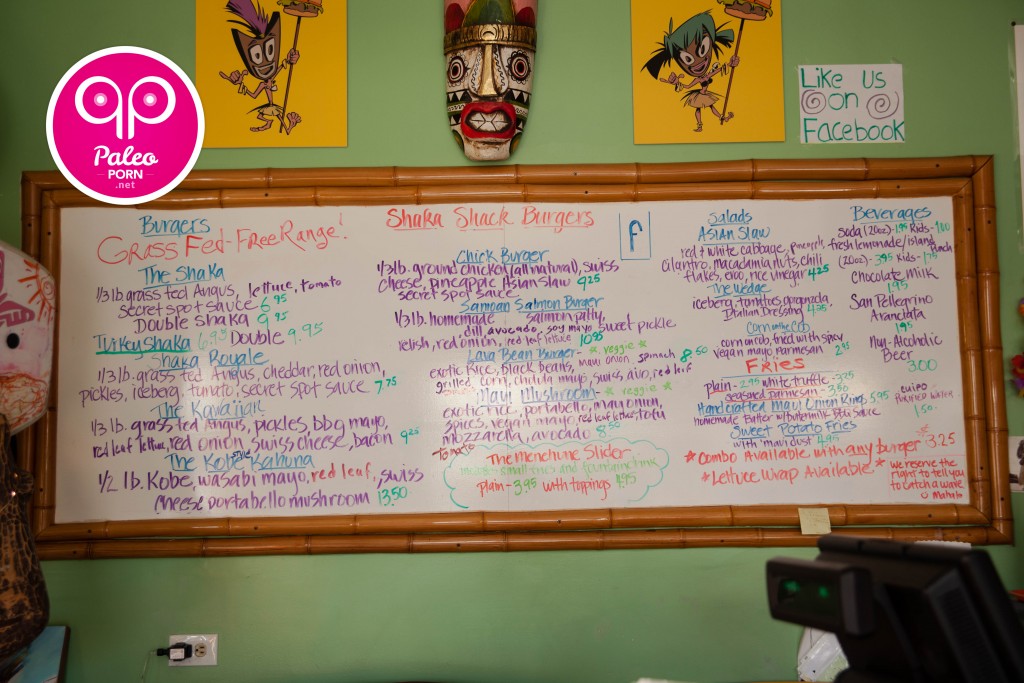 Paleo
PORN
.net
Like Us
on
Facebook
Burgers
Grass Fed-Free Range!
The Shaka
1/3 lb. grass fed Angus, lettuce, tomato
secret spot sauce 6.95
Double Shaka 9.95
Turkey Shaka 6.95 Double 9.95
Shaka Royale
1/3 lb. grass fed Angus, cheddar, red onion,
pickles, iceberg, tomato, secret spot sauce 7.75
The Kawaiian
1/3 lb. grass fed Angus, pickles, bbq mayo,
red leaf lettuce, red onion, swiss cheese, bacon 9.25
The Kobe Style Kahuna
1/2 lb. Kobe, wasabi mayo, red leaf, swiss
cheese portabello mushroom 13.50
Shaka Shack Burgers
Chick Burger
1/3 lb. ground chicken (all natural), swiss
cheese, pineapple Asian Slaw 9.25
secret spot sauce
Samoan Salmon Burger
1/3 lb. homemade salmon patty,
dill avocado, soy mayo sweet pickle
relish, red onion, red leaf lettuce 10.95
Lava Bean Burger - * veggie *
exotic rice, black beans, maui onion, spinach 8.50
grilled corn, chulula mayo, swiss, avo, red leaf
Maui Mushroom - * veggie *
exotic rice, portabello, maui onion,
spices, vegan mayo, red leaf lettuce tofu
mozzarella, avocado 8.50
Tomato
The Menehune Slider
small fries and fountain drink
plain - 3.95 with toppings 4.95
f
Salads
Asian Slaw
red & white cabbage, pineapple
cilantro, macadamia nuts, chili
flakes, evoo, rice vinegar 4.25
The Wedge
iceberg, tomatos, gorgonzola,
Italian Dressing 4.75
Corn on the Cob
corn on cob, fried with spicy
vegan mayo parmesan 2.95
Fries
plain - 2.95 white truffle - 3.25
seasoned parmesan - 3.50
Handcrafted Maui Onion Rings 5.95
homemade Batter w/ Buttermilk BBQ Sauce
Sweet Potato Fries
with 'maui dust' 4.95
*Combo Available with any burger 3.25
*Lettuce Wrap Available! *
Beverages
Soda (20oz) - 1.95 Kids - 1.00
fresh lemonade/island Punch
(20oz) - 3.95 kids - 1.75
Chocolate Milk
1.95
San Pellegrino
Aranciata
1.95
Non-Alcoholic
Beer
3.00
Purified water
1.50
we reserve the
right to tell you
to catch a wave
Mahalo